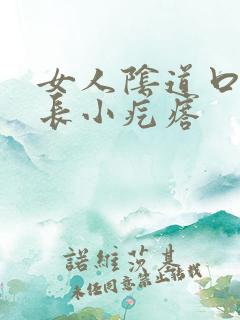 女人陰道口
長小疙瘩
諾維莎基
未任同意禁止搭載